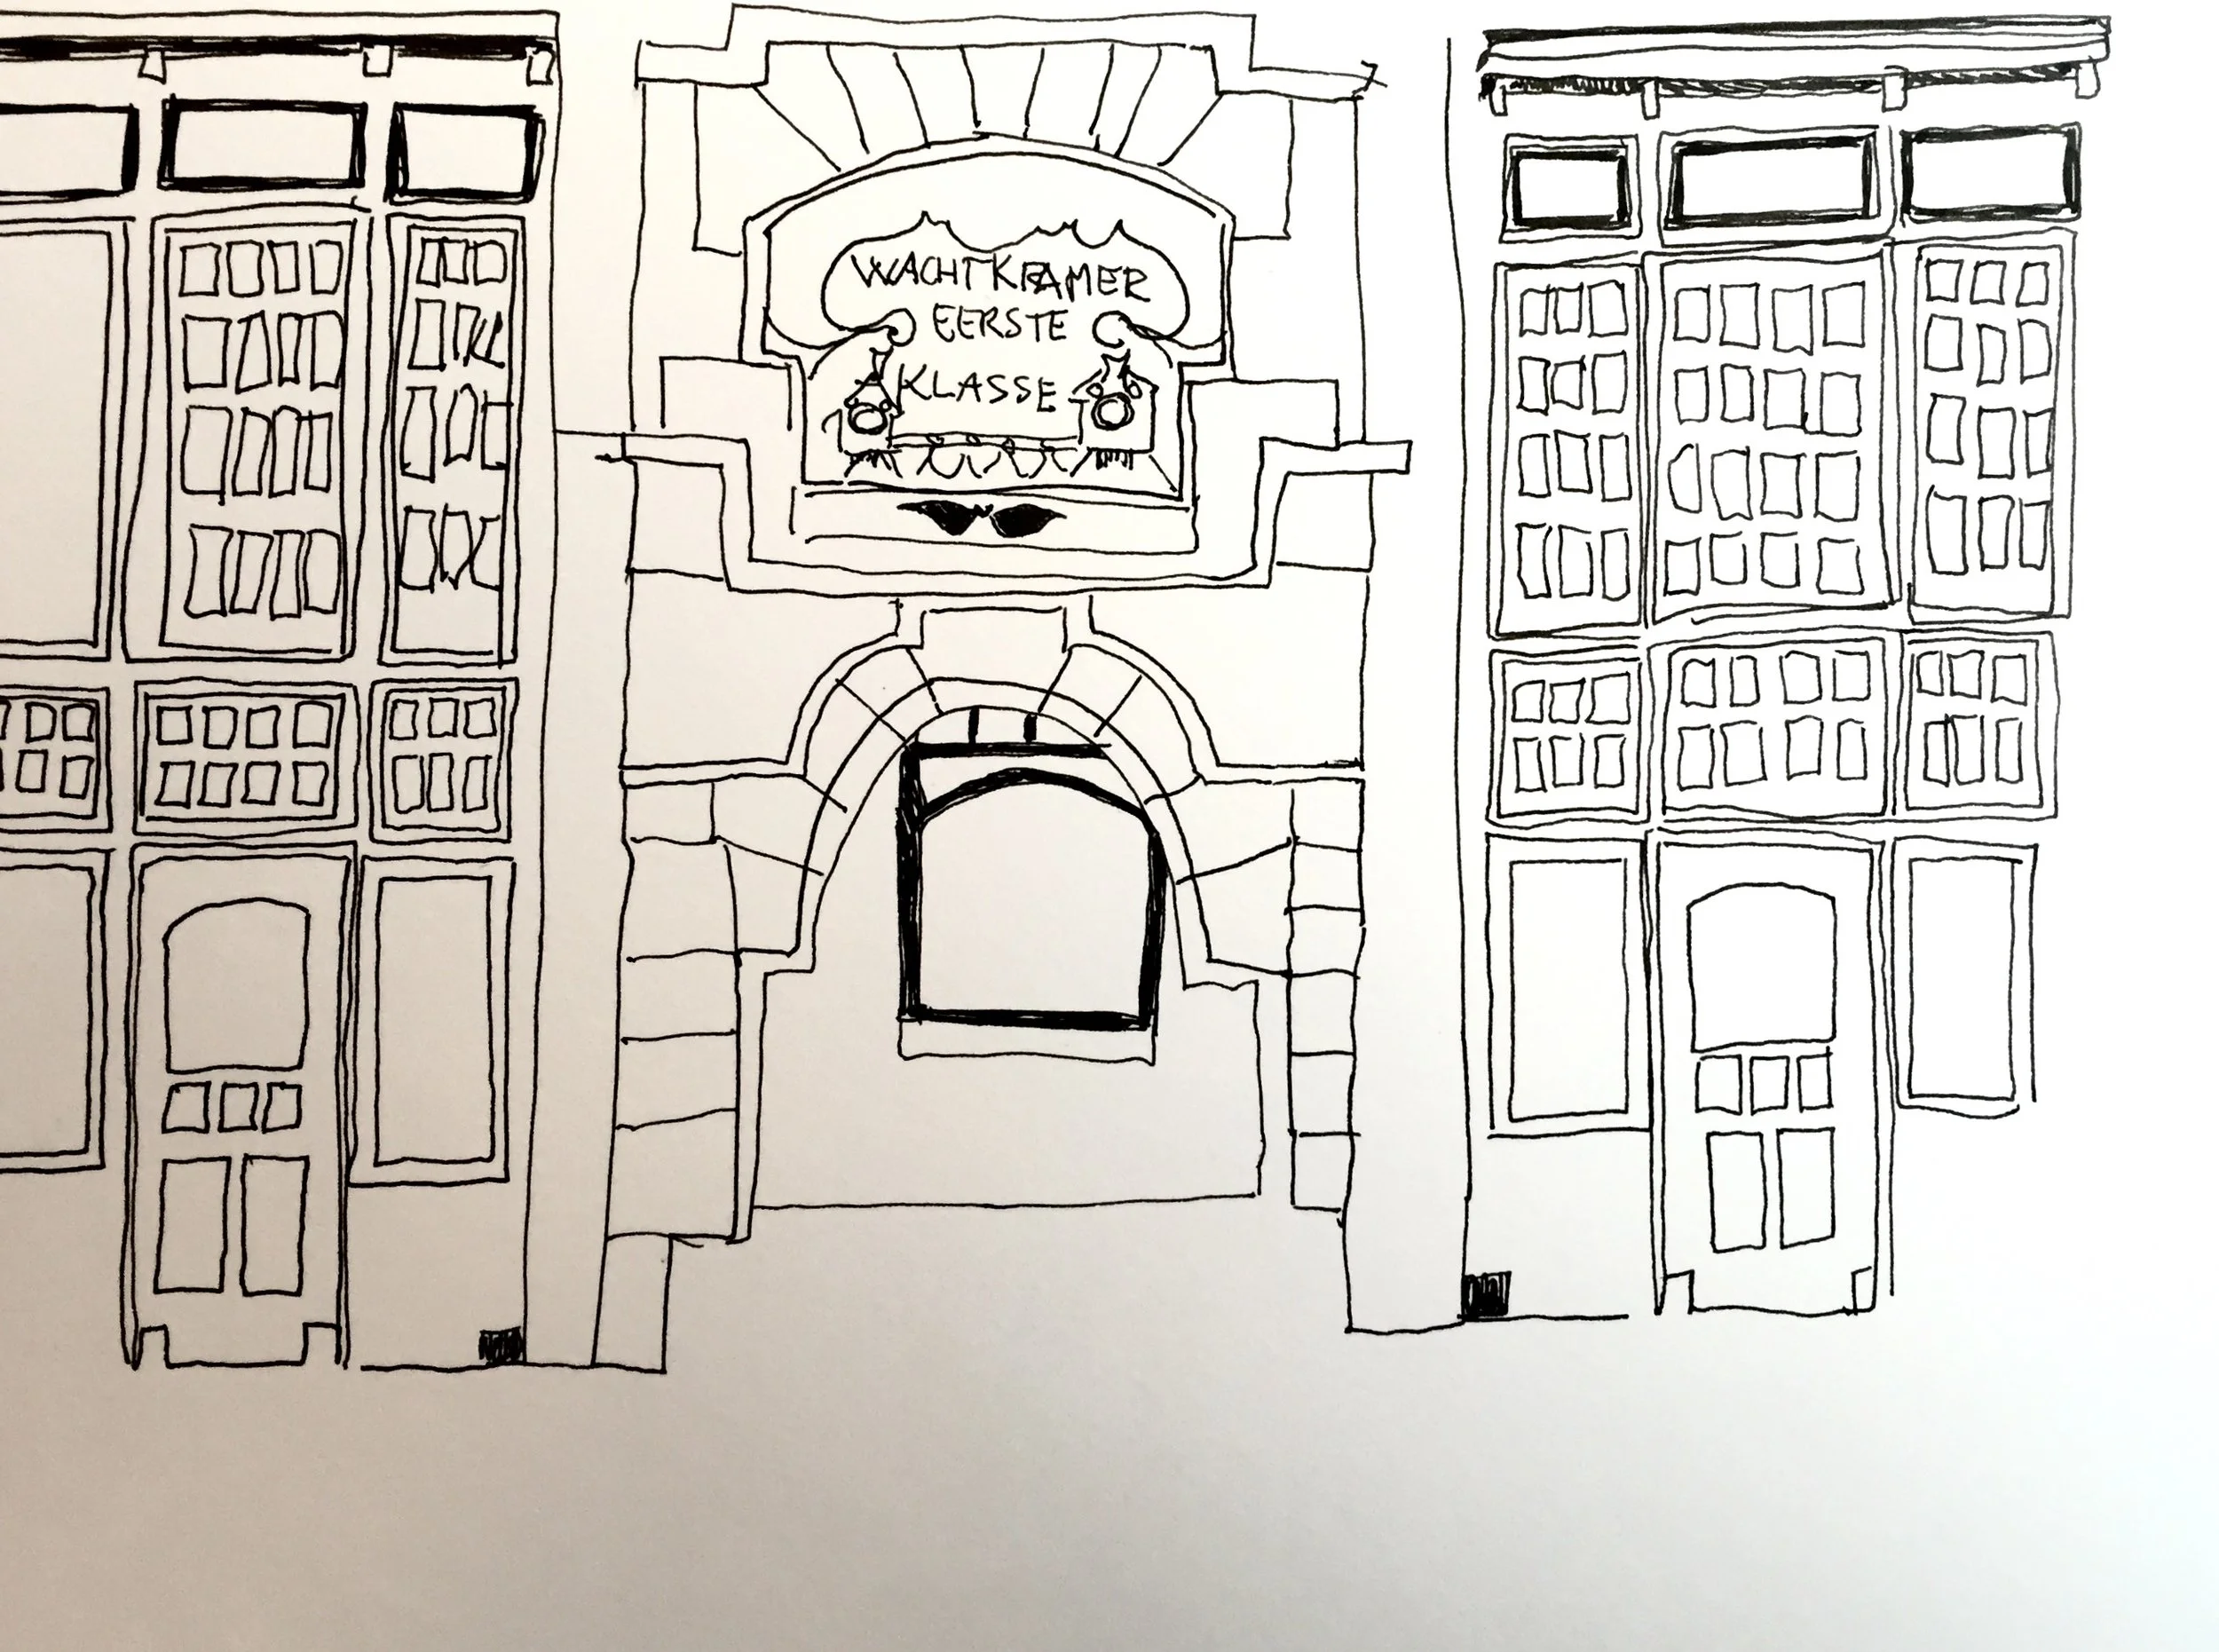 WACHTKRAMER
EERSTE
KLASSE